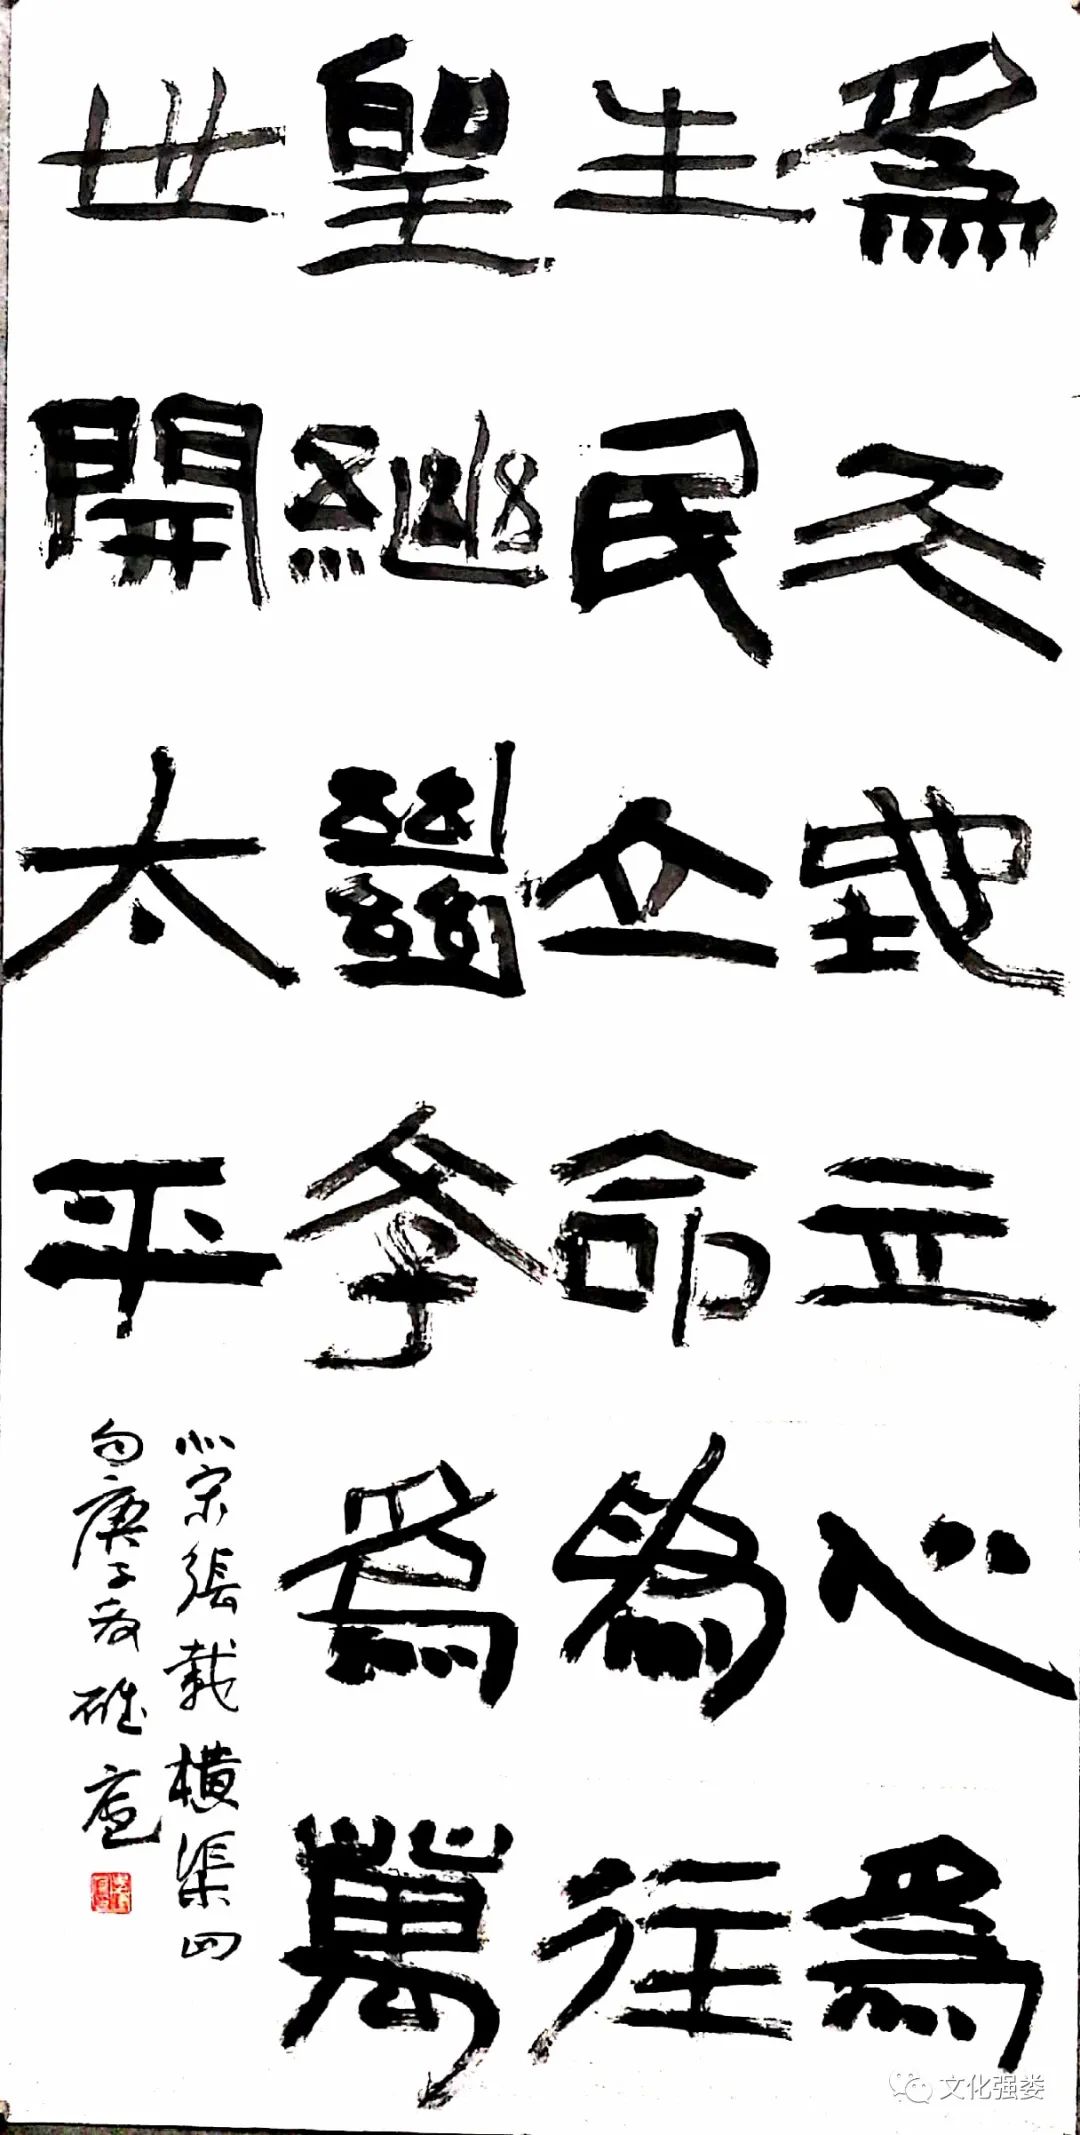 為天地立心為
生民立命為往
聖繼絕學為萬
世開太平
北宋張載橫渠四
句庚子
文化强娄